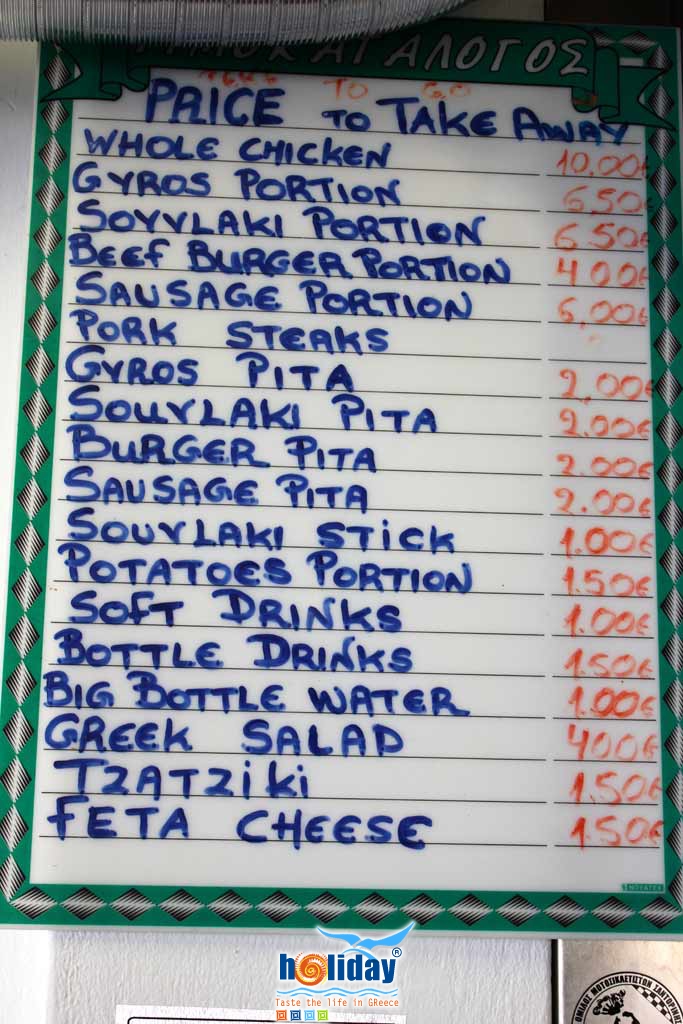 ΤΙΜΟΚΑΤΑΛΟΓΟΣ
TO GO
PRICE TO TAKE AWAY
WHOLE CHICKEN 10,00€
GYROS PORTION 6,50€
SOYVLAKI PORTION 6,50€
BEEF BURGER PORTION 4 00€
SAUSAGE PORTION 6,00€
PORK STEAKS
GYROS PITA 2,00€
SOUVLAKI PITA 2.00€
BURGER PITA 2.00€
SAUSAGE PITA 2.00€
SOUVLAKI STICK 1.00€
POTATOES PORTION 1.50€
SOFT DRINKS 1.00€
BOTTLE DRINKS 1.50€
BIG BOTTLE WATER 1.00€
GREEK SALAD 4 00€
TZATZiKi 1.50€
FETA CHEESE 1.50€
INOVATEX
holiday®
Taste the life in Greece
ΟΜΙΛΟΣ ΜΟΤΟΣΙΚΛΕΤΙΣΤΩΝ ΣΑΝΤΟΡΙΝΗΣ